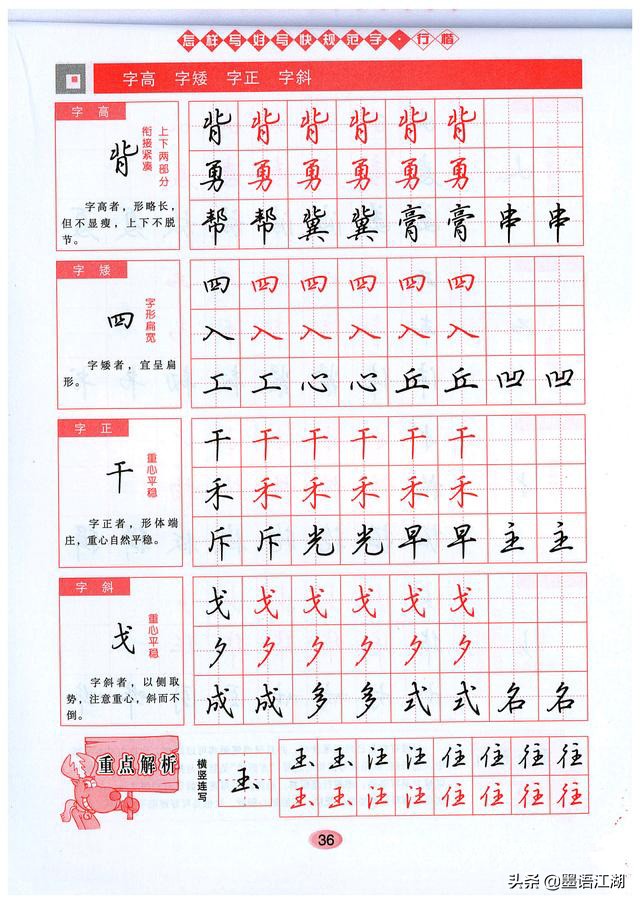 怎样写好写快规范字·行楷
字高 字矮 字正 字斜
字高
背
上下两部分
衔接紧凑
字高者，形略长，
但不显瘦，上下不脱
节。
背 背 背 背 背 背
勇 勇 勇 勇 勇 勇
帮 帮 冀 冀 膏 膏 串 串
字矮
四
字形扁宽
字矮者，宜呈扁
形。
四 四 四 四 四 四
入 入 入 入 入 入
工 工 心 心 丘 丘 凹 凹
字正
干
重心平稳
字正者，形体端
庄，重心自然平稳。
干 干 干 干 干 干
禾 禾 禾 禾 禾 禾
斥 斥 光 光 早 早 主 主
字斜
戈
重心平稳
字斜者，以侧取
势，注意重心，斜而不
倒。
戈 戈 戈 戈 戈 戈
夕 夕 夕 夕 夕 夕
成 成 多 多 式 式 名 名
重点解析
横竖连写
玉
玉 玉 汪 汪 住 住 往 往
玉 玉 汪 汪 住 住 往 往
36
头条 @墨语江湖